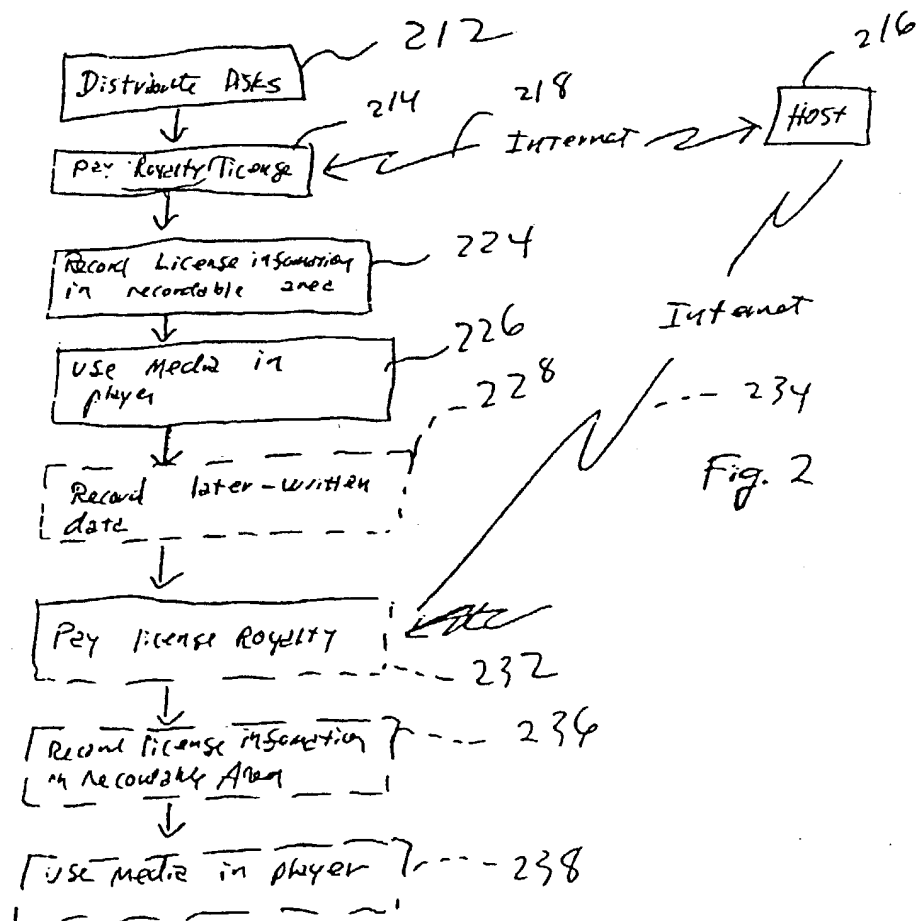 212
Distribute Disks
216
Host
214
218
Internet
Pay Royalty/License
224
Record License information
in recordable area
Internet
226
Use Media in
player
228
234
Fig. 2
Record later-written
data
Pay license Royalty
232
Record license information
in recordable Area
236
Use Media in player
238